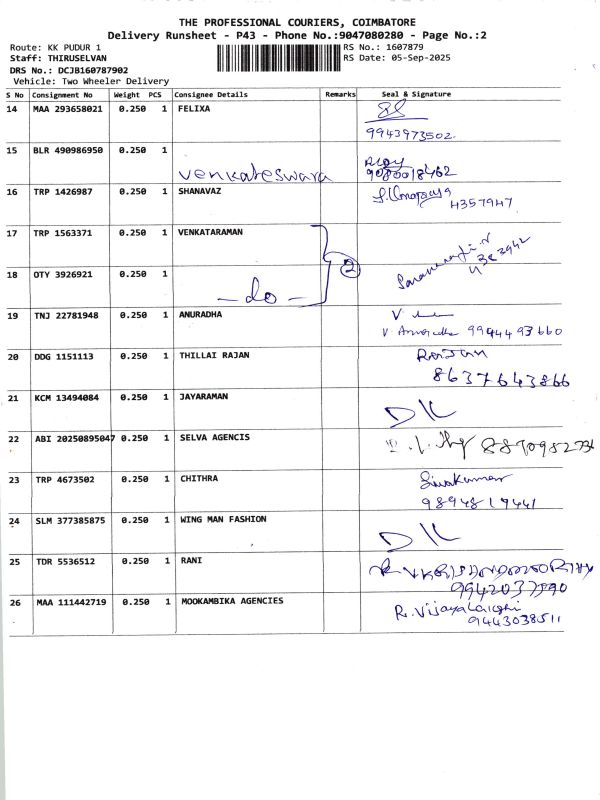 THE PROFESSIONAL COURIERS, COIMBATORE
Delivery Runsheet - P43 - Phone No.:9047080280 - Page No.:2
Route: KK PUDUR 1
RS No.: 1607879
Staff: THIRUSELVAN
RS Date: 05-Sep-2025
DRS No.: DCJB160787902
Vehicle: Two Wheeler Delivery
S No Consignment No Weight PCS Consignee Details Remarks Seal & Signature
14 MAA 293658021 0.250 1 FELIXA
9943973502.
15 BLR 490986950 0.250 1
Venkateswara 9080018462
16 TRP 1426987 0.250 1 SHANAVAZ
4357947
17 TRP 1563371 0.250 1 VENKATARAMAN
2
18 OTY 3926921 0.250 1
- do -
19 TNJ 22781948 0.250 1 ANURADHA
V. Anuradha 9994493660
20 DDG 1151113 0.250 1 THILLAI RAJAN Rajan
8637643866
21 KCM 13494084 0.250 1 JAYARAMAN
DK
22 ABI 20250895047 0.250 1 SELVA AGENCIS
23 TRP 4673502 0.250 1 CHITHRA Sivakumar
9894819441
24 SLM 377385875 0.250 1 WING MAN FASHION
DK
25 TDR 5536512 0.250 1 RANI
26 MAA 111442719 0.250 1 MOOKAMBIKA AGENCIES R. Vijayalakshi
9443038511